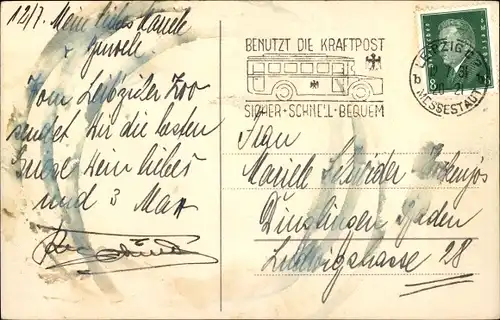 12/7. Mein liebes Mariele
+ Gunsele
Vom Leipziger Zoo
sendet Dir die besten
Grüsse Dein liebes
und 3 Max
BENUTZT DIE KRAFTPOST
SICHER + SCHNELL + BEQUEM
LEIPZIG
b b
MESSESTADT
8
Frau
Mariele
Dinglingen Baden
Ludwigstrasse 28